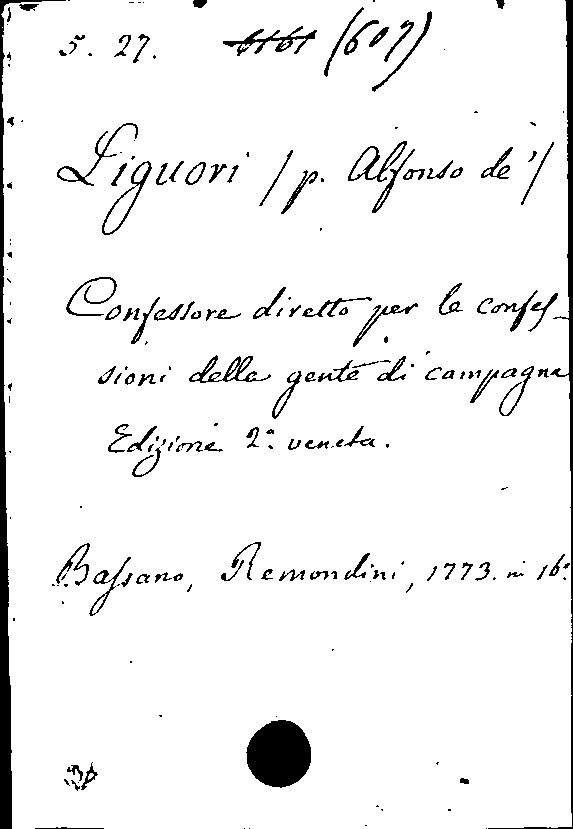 5. 27. (607)
Liguori / p. Alfonso de' /
Confessore diretto per le confes-
sioni della gente di campagna
Edizione 2.a veneta.
Bassano, Remondini, 1773. in 16.o